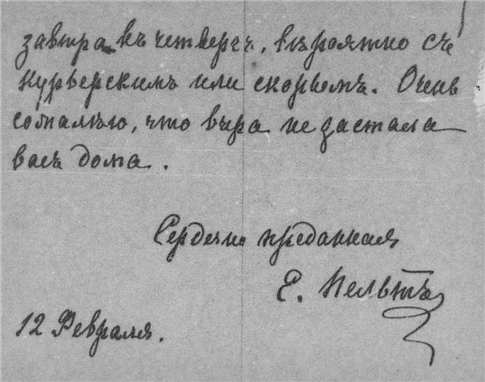 завтра въ четвергъ, вѣроятно съ
курьерскимъ или скорымъ. Очень
сожалѣю, что Вѣра не застала
васъ дома.
Сердечно преданная
Е.
12 Февраля.